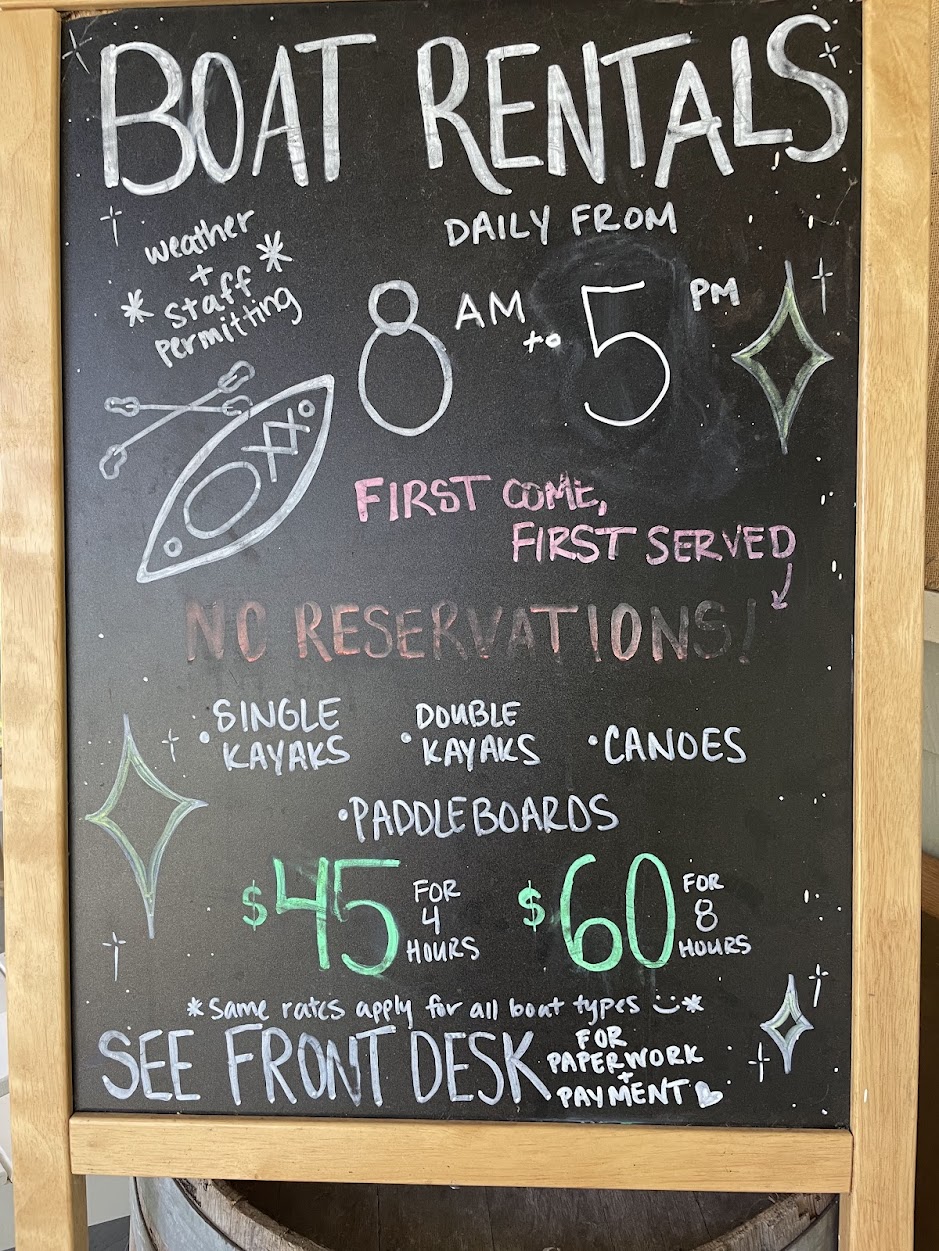 BOAT RENTALS
weather
+
* staff *
permitting
DAILY FROM
8 AM to 5 PM
FIRST COME,
FIRST SERVED
NO RESERVATIONS!
• SINGLE KAYAKS
• DOUBLE KAYAKS
• CANOES
• PADDLEBOARDS
$45 FOR 4 HOURS
$60 FOR 8 HOURS
*Same rates apply for all boat types :)*
SEE FRONT DESK FOR PAPERWORK + PAYMENT ♡